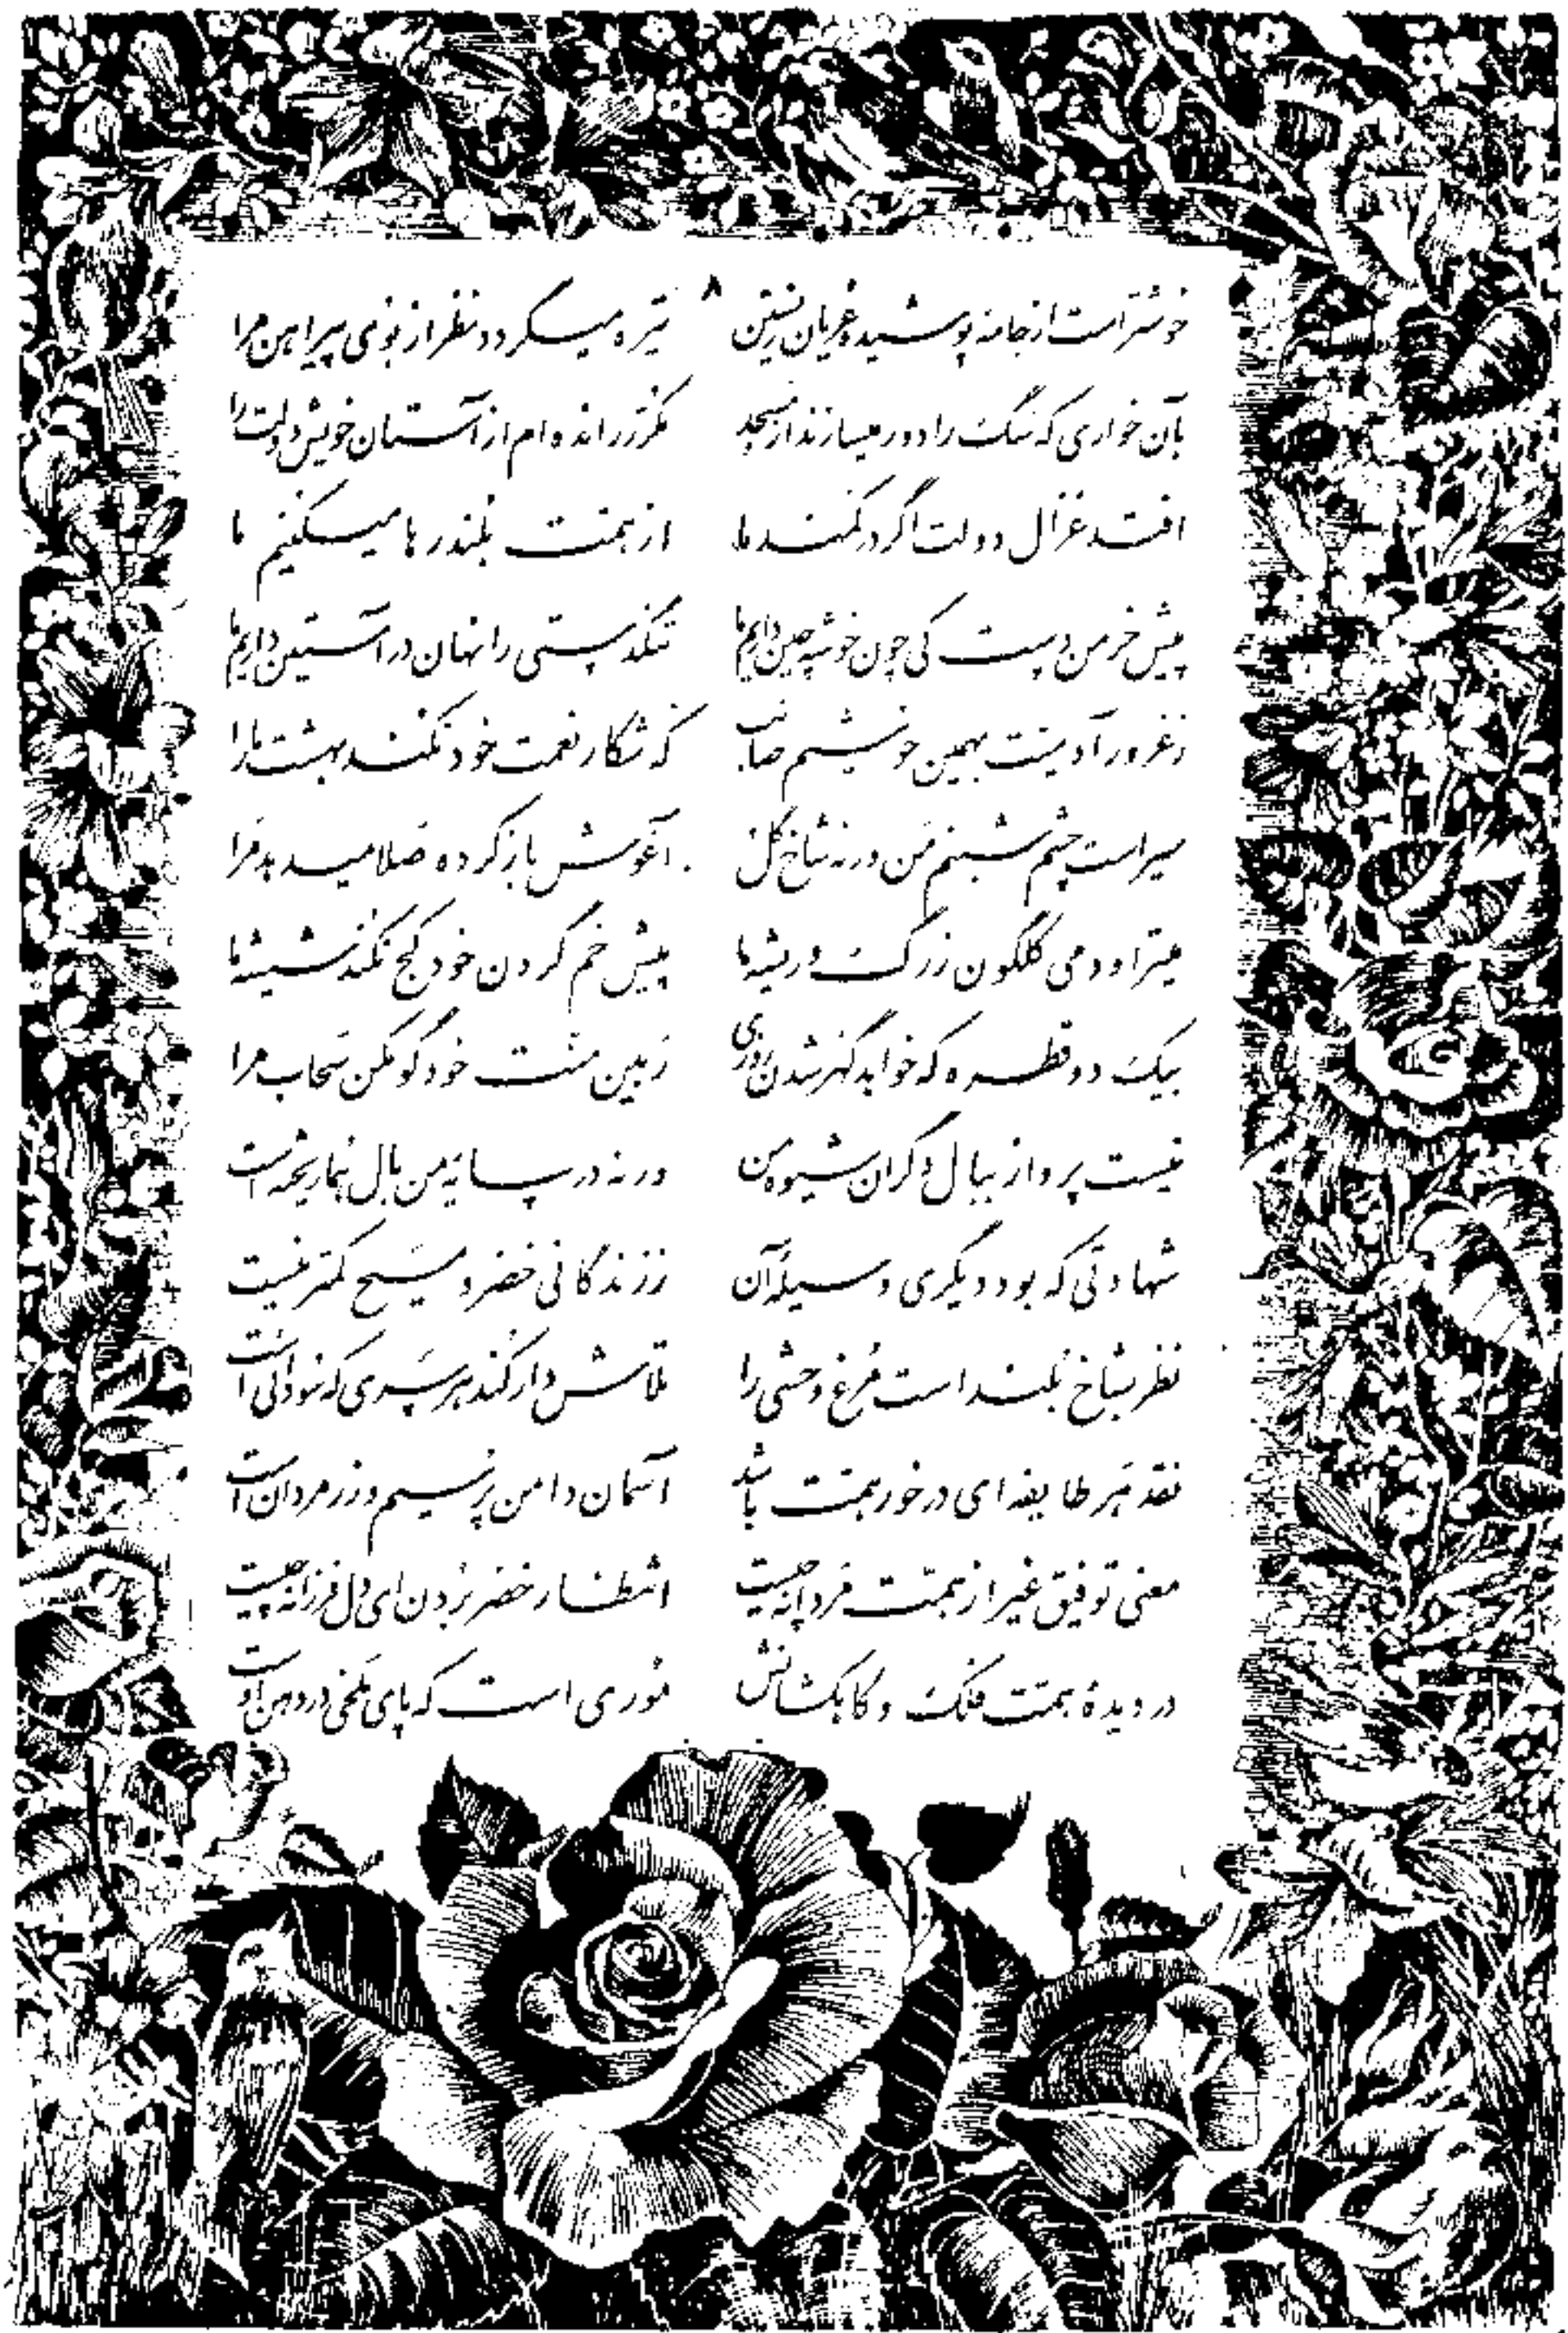 ۸
خوشتر است از جامه پوشیده عریان زیستن تیره میگردد نظر از بوی پیراهن مرا
بآن خواری که سگ را دور میسازند از مسجد مکرّر رانده ام از آستان خویش دولت را
افتد غزال دولت اگر در کمند ما از همّت بلند رها میکنیم ما
پیش خرمن دست کی چون خوشه چین داریم ما تنگدستی را نهان در آستین داریم ما
ز غرور آدمیّت بهمین خوشیم صائب که شکار نعمت خود نکند بهشت ما را
سیر است چشم شبنم من ورنه شاخ گل آغوش باز کرده صلا میدهد مرا
میتراود می گلگون ز رگ و ریشه ما پیش خم گردن خود کج نکند شیشه ما
بیک دو قطره که خواهد گهر شدن روزی زمین منّت خود گو مکن سحاب مرا
نیست پرواز ببال دگران شیوه من ورنه در سایه من بال هما ریخته است
شهادتی که بود دیگری وسیلهٔ آن ز زندگانی خضر و مسیح کمتر نیست
نظر بشاخ بلند است مرغ وحشی را تلاش دار کند هر سری که سودائی است
نقد هر طایفه ای در خور همّت باشد آسمان دامن پر سیم و زر مردان است
معنی توفیق غیر از همّت مردانه چیست انتظار خضر بردن ای دل فرزانه چیست
در دیدهٔ همّت فلک و کاهکشانش موری است که پای ملخی در دهن اوست